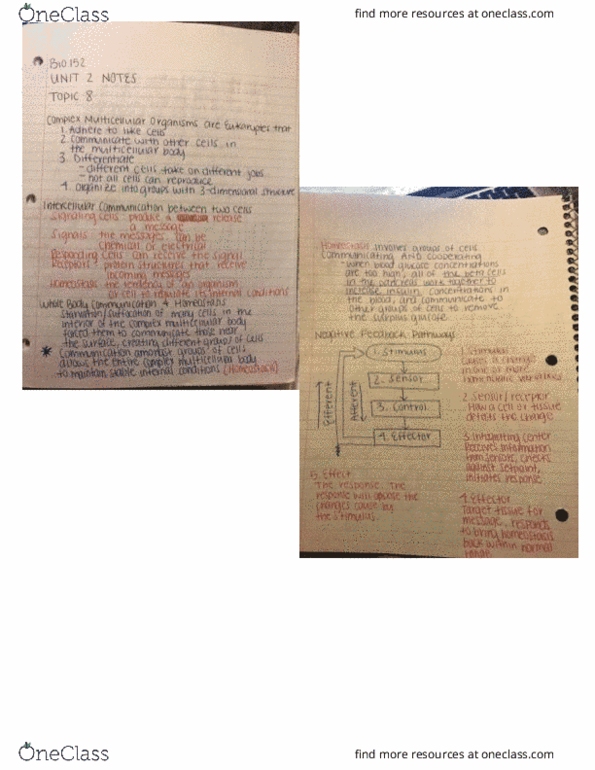 OneClass
find more resources at oneclass.com
BIO 152
UNIT 2 NOTES
TOPIC 8
Complex Multicellular Organisms are Eukaryotes that
1. Adhere to like cells
2. Communicate with other cells in
the multicellular body
3. Differentiate
- different cells take on different jobs
- not all cells can reproduce
4. Organize into groups with 3-dimensional structure
Intercellular Communication between two cells
Signaling cells produce a release
a message
Signals: the messages can be
chemical or electrical
Responding cells can receive the signal
Receptors: protein structures that receive
incoming messages
Homeostasis the tendency of an organism
or cell to regulate its internal conditions
Whole Body Communication & Homeostasis
Starvation/suffocation of many cells in the
interior of the complex multicellular body
forced them to communicate those near
the surface, creating different groups of cells
* Communication amongst groups of cells
allows the entire complex multicellular body
to maintain stable internal conditions (Homeostasis)
Homeostasis involves groups of cells
communicating AND cooperating
- when blood glucose concentrations
are too high, all of the beta cells
in the pancreas work together to
increase insulin concentrations in
the blood, and communicate to
other groups of cells to remove
the surplus glucose
Negative Feedback Pathways
1. Stimulus
2. Sensor
3. Control
4. Effector
Efferent
Afferent
1. Stimulus
causes a change
in one or more
homeostatic variables
2. Sensor/receptor
How a cell or tissue
detects the change
3. Integrating center
Receives information
from sensors, checks
against setpoint,
initiates response
4. Effector
Target tissue for
message, responds
to bring homeostasis
back within normal
range
5. Effect
The response. The
response will oppose the
changes cause by
the stimulus.
OneClass
find more resources at oneclass.com